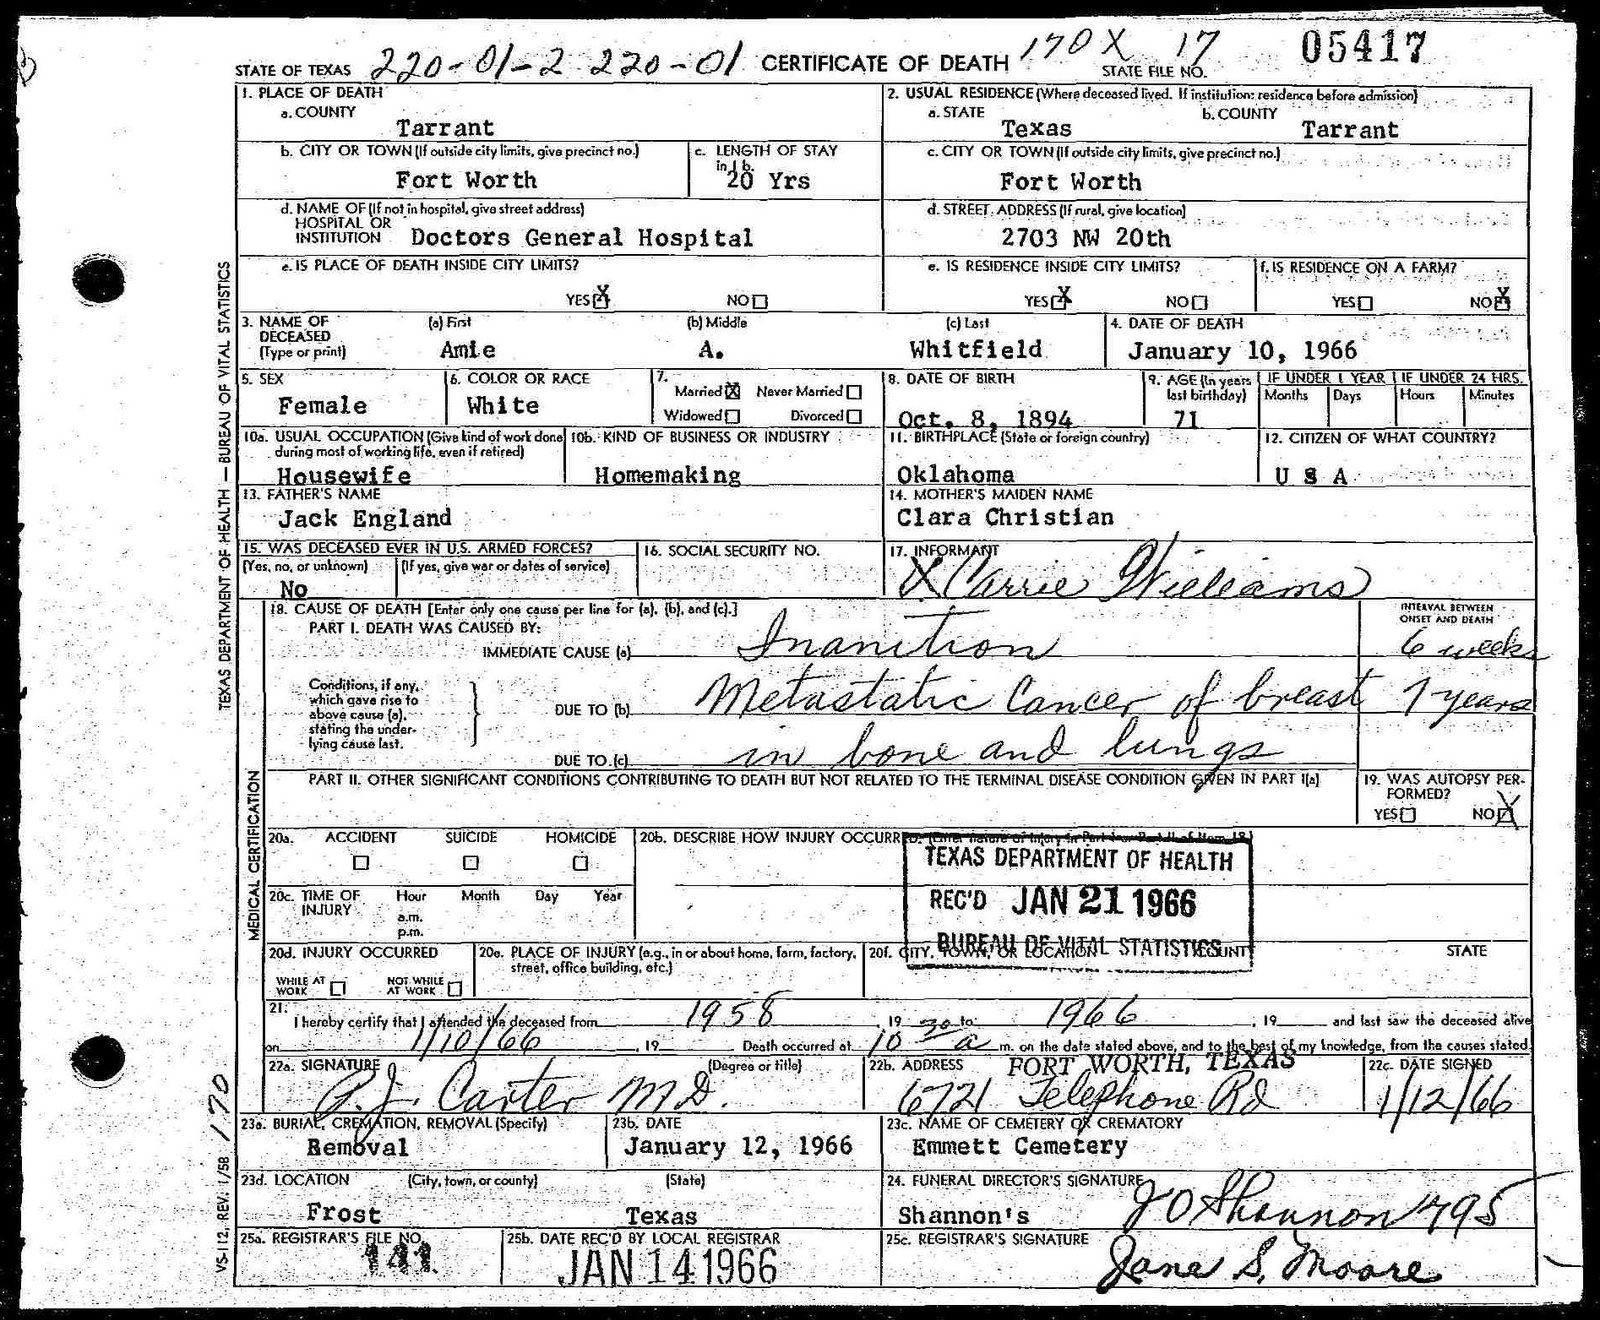 STATE OF TEXAS 220-01-2 220-01 CERTIFICATE OF DEATH 170X 17 STATE FILE NO. 05417
1. PLACE OF DEATH
a. COUNTY
Tarrant
2. USUAL RESIDENCE (Where deceased lived. If institution: residence before admission)
a. STATE b. COUNTY
Texas Tarrant
b. CITY OR TOWN (If outside city limits, give precinct no.) c. LENGTH OF STAY in 1b.
Fort Worth 20 Yrs
c. CITY OR TOWN (If outside city limits, give precinct no.)
Fort Worth
d. NAME OF (If not in hospital, give street address)
HOSPITAL OR
INSTITUTION Doctors General Hospital
d. STREET ADDRESS (If rural, give location)
2703 NW 20th
e. IS PLACE OF DEATH INSIDE CITY LIMITS?
YES X NO
e. IS RESIDENCE INSIDE CITY LIMITS? f. IS RESIDENCE ON A FARM?
YES X NO YES NO X
3. NAME OF DECEASED (Type or print) (a) First (b) Middle (c) Last
Amie A. Whitfield
4. DATE OF DEATH
January 10, 1966
5. SEX
Female
6. COLOR OR RACE
White
7.
Married X Never Married
Widowed Divorced
8. DATE OF BIRTH
Oct. 8, 1894
9. AGE (In years last birthday)
71
IF UNDER 1 YEAR IF UNDER 24 HRS.
Months Days Hours Minutes
10a. USUAL OCCUPATION (Give kind of work done during most of working life, even if retired)
Housewife
10b. KIND OF BUSINESS OR INDUSTRY
Homemaking
11. BIRTHPLACE (State or foreign country)
Oklahoma
12. CITIZEN OF WHAT COUNTRY?
U S A
13. FATHER'S NAME
Jack England
14. MOTHER'S MAIDEN NAME
Clara Christian
15. WAS DECEASED EVER IN U.S. ARMED FORCES?
(Yes, no, or unknown) (If yes, give war or dates of service)
No
16. SOCIAL SECURITY NO.
17. INFORMANT
X Carrie Williams
18. CAUSE OF DEATH [Enter only one cause per line for (a), (b), and (c).]
PART I. DEATH WAS CAUSED BY:
INTERVAL BETWEEN ONSET AND DEATH
IMMEDIATE CAUSE (a) Inanition 6 weeks
Conditions, if any,
which gave rise to
above cause (a),
stating the under-
lying cause last.
DUE TO (b) Metastatic Cancer of breast 7 years
DUE TO (c) in bone and lungs
PART II. OTHER SIGNIFICANT CONDITIONS CONTRIBUTING TO DEATH BUT NOT RELATED TO THE TERMINAL DISEASE CONDITION GIVEN IN PART I(a)
19. WAS AUTOPSY PER-
FORMED?
YES NO X
20a. ACCIDENT SUICIDE HOMICIDE
20b. DESCRIBE HOW INJURY OCCURRED. (Enter nature of injury in Part I or Part II of Item 18)
TEXAS DEPARTMENT OF HEALTH
REC'D JAN 21 1966
BUREAU OF VITAL STATISTICS
20c. TIME OF INJURY Hour Month Day Year
a.m.
p.m.
20d. INJURY OCCURRED
WHILE AT WORK NOT WHILE AT WORK
20e. PLACE OF INJURY (e.g., in or about home, farm, factory, street, office building, etc.)
20f. CITY, TOWN, OR LOCATION COUNTY STATE
21. I hereby certify that I attended the deceased from 1958, 19 to 1966, 19 and last saw the deceased alive
on 1/10/66, 19 Death occurred at 10 30 a m. on the date stated above, and to the best of my knowledge, from the causes stated.
22a. SIGNATURE (Degree or title)
P. J. Carter M.D.
22b. ADDRESS FORT WORTH, TEXAS
6721 Telephone Rd
22c. DATE SIGNED
1/12/66
23a. BURIAL, CREMATION, REMOVAL (Specify)
Removal
23b. DATE
January 12, 1966
23c. NAME OF CEMETERY OR CREMATORY
Emmett Cemetery
23d. LOCATION (City, town, or county) (State)
Frost Texas
24. FUNERAL DIRECTOR'S SIGNATURE
Shannon's J O Shannon 4795
25a. REGISTRAR'S FILE NO.
141
25b. DATE REC'D BY LOCAL REGISTRAR
JAN 14 1966
25c. REGISTRAR'S SIGNATURE
Jane S. Moore
TEXAS DEPARTMENT OF HEALTH — BUREAU OF VITAL STATISTICS
MEDICAL CERTIFICATION
VS-112, REV. 1/58 170